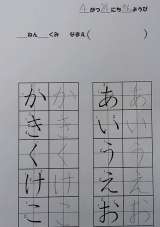 がつ にち ようび
ねん くみ なまえ( )
あ あ
い い
う う
え え
お お
か か
き き
く く
け け
こ こ